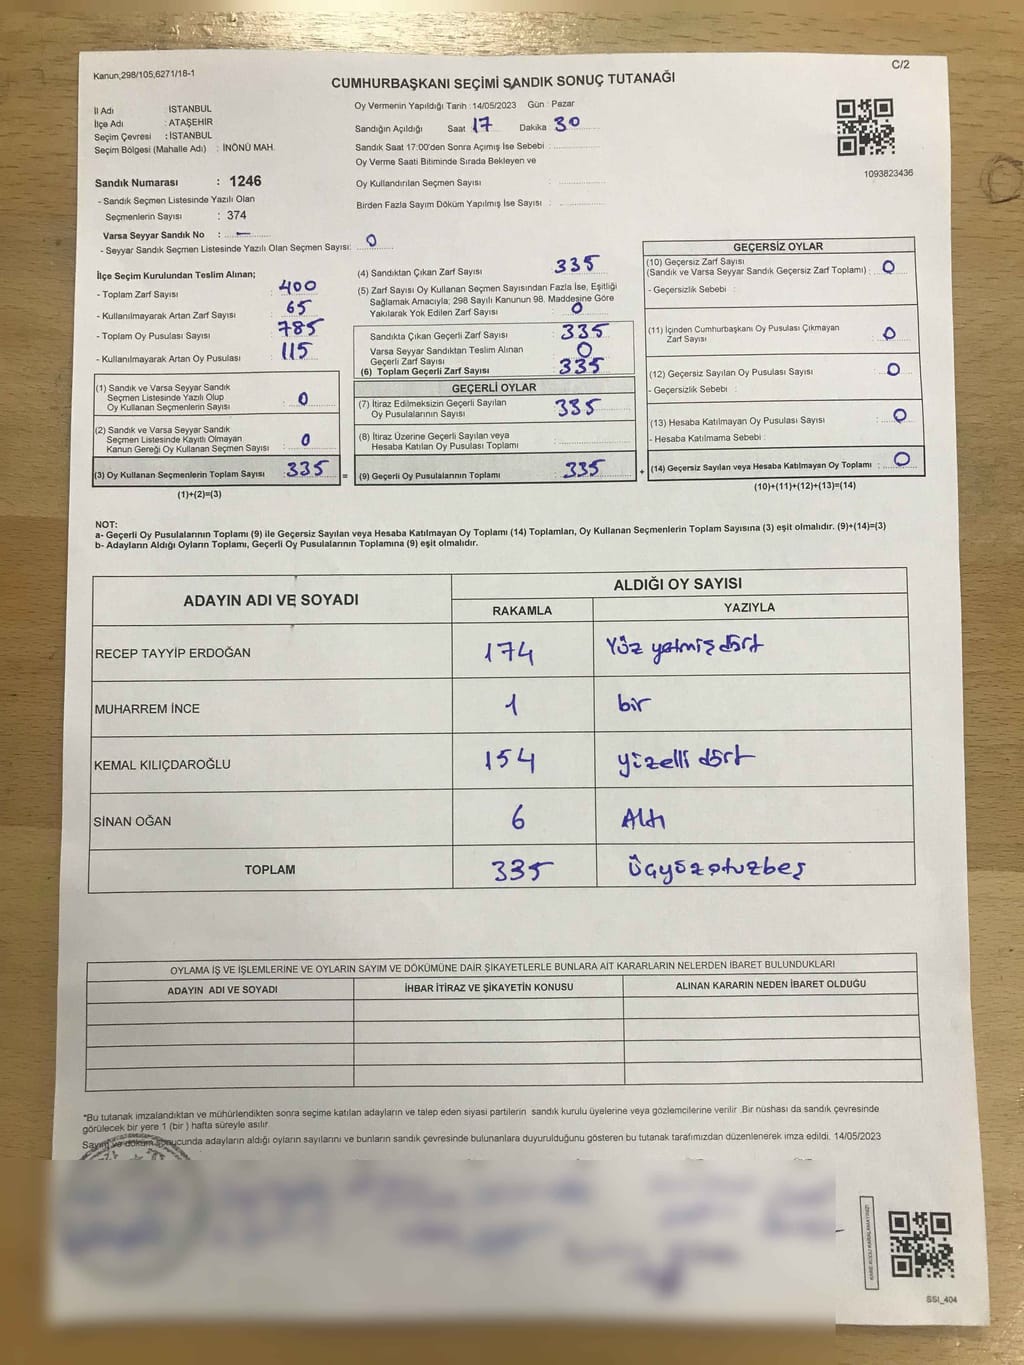 Kanun,298/105,6271/18-1
C/2
CUMHURBAŞKANI SEÇİMİ SANDIK SONUÇ TUTANAĞI
İl Adı : İSTANBUL
İlçe Adı : ATAŞEHİR
Seçim Çevresi : İSTANBUL
Seçim Bölgesi (Mahalle Adı) : İNÖNÜ MAH.
Sandık Numarası : 1246
- Sandık Seçmen Listesinde Yazılı Olan
Seçmenlerin Sayısı : 374
Varsa Seyyar Sandık No : –
- Seyyar Sandık Seçmen Listesinde Yazılı Olan Seçmen Sayısı: 0
Oy Vermenin Yapıldığı Tarih : 14/05/2023 Gün : Pazar
Sandığın Açıldığı Saat 17 Dakika 30
Sandık Saat 17:00'den Sonra Açımış İse Sebebi :
Oy Verme Saati Bitiminde Sırada Bekleyen ve
Oy Kullandırılan Seçmen Sayısı :
Birden Fazla Sayım Döküm Yapılmış İse Sayısı :
1093823436
İlçe Seçim Kurulundan Teslim Alınan;
- Toplam Zarf Sayısı : 400
- Kullanılmayarak Artan Zarf Sayısı : 65
- Toplam Oy Pusulası Sayısı : 785
- Kullanılmayarak Artan Oy Pusulası : 115
(1) Sandık ve Varsa Seyyar Sandık
Seçmen Listesinde Yazılı Olup
Oy Kullanan Seçmenlerin Sayısı : 0
(2) Sandık ve Varsa Seyyar Sandık
Seçmen Listesinde Kayıtlı Olmayan
Kanun Gereği Oy Kullanan Seçmen Sayısı : 0
(3) Oy Kullanan Seçmenlerin Toplam Sayısı : 335 =
(1)+(2)=(3)
(4) Sandıktan Çıkan Zarf Sayısı : 335
(5) Zarf Sayısı Oy Kullanan Seçmen Sayısından Fazla İse, Eşitliği
Sağlamak Amacıyla; 298 Sayılı Kanunun 98. Maddesine Göre
Yakılarak Yok Edilen Zarf Sayısı : 0
Sandıkta Çıkan Geçerli Zarf Sayısı : 335
Varsa Seyyar Sandıktan Teslim Alınan
Geçerli Zarf Sayısı : 0
(6) Toplam Geçerli Zarf Sayısı : 335
GEÇERLİ OYLAR
(7) İtiraz Edilmeksizin Geçerli Sayılan
Oy Pusulalarının Sayısı : 335
(8) İtiraz Üzerine Geçerli Sayılan veya
Hesaba Katılan Oy Pusulası Toplamı :
(9) Geçerli Oy Pusulalarının Toplamı : 335 +
GEÇERSİZ OYLAR
(10) Geçersiz Zarf Sayısı
(Sandık ve Varsa Seyyar Sandık Geçersiz Zarf Toplamı) : 0
- Geçersizlik Sebebi :
(11) İçinden Cumhurbaşkanı Oy Pusulası Çıkmayan
Zarf Sayısı : 0
(12) Geçersiz Sayılan Oy Pusulası Sayısı : 0
- Geçersizlik Sebebi :
(13) Hesaba Katılmayan Oy Pusulası Sayısı : 0
- Hesaba Katılmama Sebebi :
(14) Geçersiz Sayılan veya Hesaba Katılmayan Oy Toplamı : 0
(10)+(11)+(12)+(13)=(14)
NOT:
a- Geçerli Oy Pusulalarının Toplamı (9) ile Geçersiz Sayılan veya Hesaba Katılmayan Oy Toplamı (14) Toplamları, Oy Kullanan Seçmenlerin Toplam Sayısına (3) eşit olmalıdır. (9)+(14)=(3)
b- Adayların Aldığı Oyların Toplamı, Geçerli Oy Pusulalarının Toplamına (9) eşit olmalıdır.
ADAYIN ADI VE SOYADI
ALDIĞI OY SAYISI
RAKAMLA YAZIYLA
RECEP TAYYİP ERDOĞAN 174 Yüz yetmiş dört
MUHARREM İNCE 1 bir
KEMAL KILIÇDAROĞLU 154 yüzelli dört
SİNAN OĞAN 6 Altı
TOPLAM 335 Üçyüzotuzbeş
OYLAMA İŞ VE İŞLEMLERİNE VE OYLARIN SAYIM VE DÖKÜMÜNE DAİR ŞİKAYETLERLE BUNLARA AİT KARARLARIN NELERDEN İBARET BULUNDUKLARI
ADAYIN ADI VE SOYADI İHBAR İTİRAZ VE ŞİKAYETİN KONUSU ALINAN KARARIN NEDEN İBARET OLDUĞU
*Bu tutanak imzalandıktan ve mühürlendikten sonra seçime katılan adayların ve talep eden siyasi partilerin sandık kurulu üyelerine veya gözlemcilerine verilir .Bir nüshası da sandık çevresinde
görülecek bir yere 1 (bir ) hafta süreyle asılır.
Sayım ve döküm sonucunda adayların aldığı oyların sayılarını ve bunların sandık çevresinde bulunanlara duyurulduğunu gösteren bu tutanak tarafımızdan düzenlenerek imza edildi. 14/05/2023
SSI_404